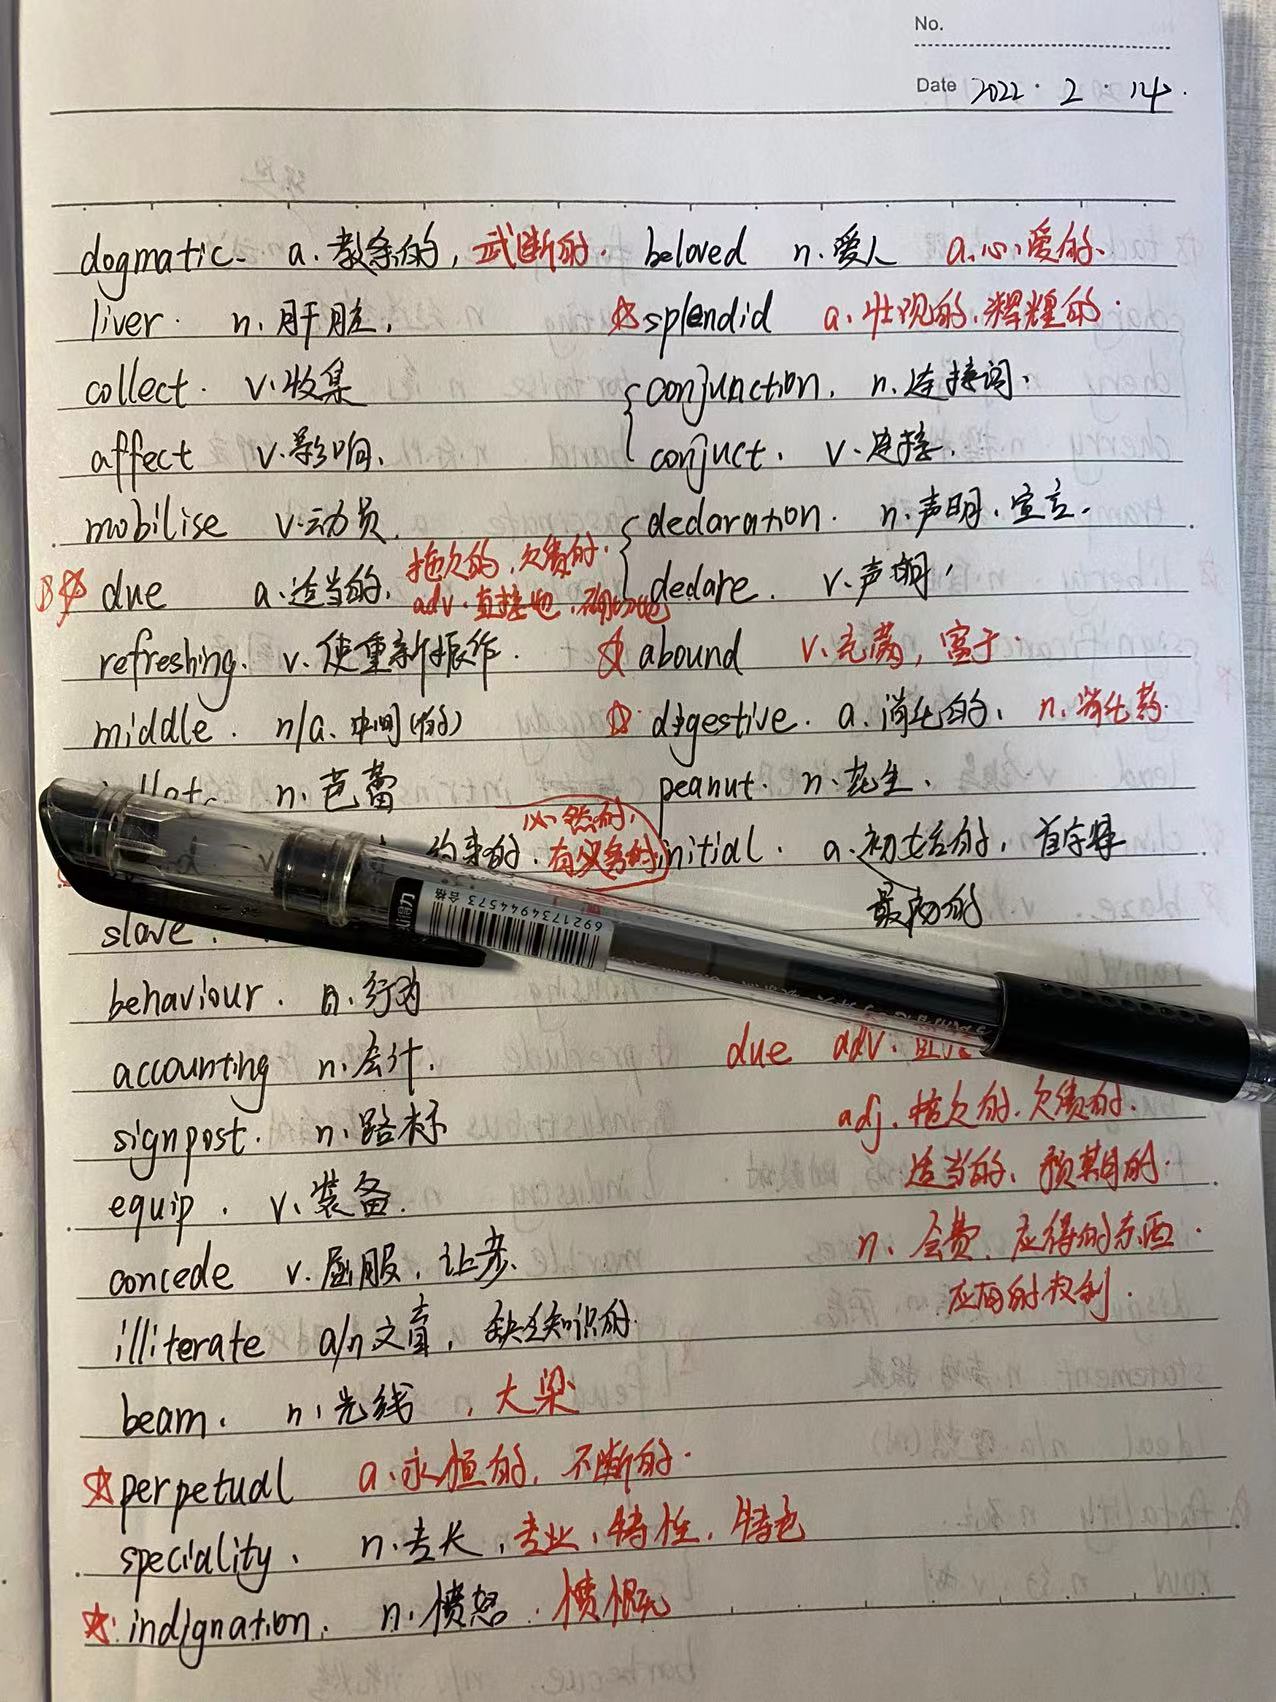 No.
Date 2022. 2. 14.
dogmatic. a. 教条的, 武断的.
liver. n. 肝脏.
collect. v. 收集
affect v. 影响.
mobilise v. 动员.
due a. 适当的. 拖欠的. 欠债的.
adv. 直接地. 确切地
refreshing. v. 使重新振作.
middle. n/a. 中间(的)
n. 芭蕾
约束的. 必然的, 有义务的
slave.
behaviour. n. 行为
accounting n. 会计.
signpost. n. 路标
equip. v. 装备.
concede v. 屈服, 让步.
illiterate a/n 文盲, 缺乏知识的.
beam. n. 光线, 大梁
☆perpetual a. 永恒的, 不断的.
speciality. n. 专长, 专业, 特性, 特色
☆indignation. n. 愤怒. 愤慨
beloved n. 爱人 a. 心爱的.
☆splendid a. 壮观的, 辉煌的.
conjunction. n. 连接词.
conjuct. v. 连接.
declaration. n. 声明. 宣言.
declare. v. 声明,
☆ abound v. 充满, 富于.
☆ digestive. a. 消化的, n. 消化药.
peanut. n. 花生.
initial. a. 初始的, 首字母
最初的
due adv.
adj. 拖欠的. 欠债的.
适当的, 预期的.
n. 会费, 应得的东西.
应有的权利.
得力
6921734944573
合格